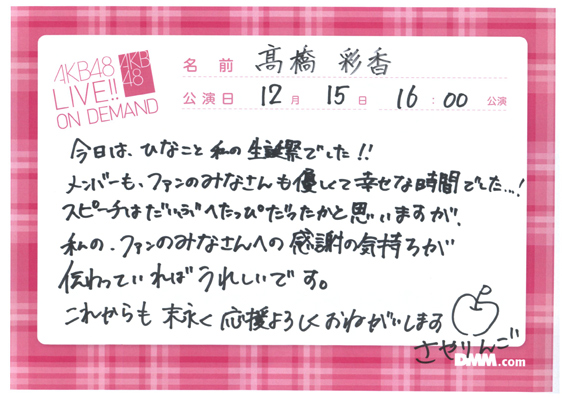 AKB48
LIVE!!
ON DEMAND
AKB
48
名前 髙橋 彩香
公演日 12月 15日 16:00 公演
今日は、ひなこと私の生誕祭でした!!
メンバーも、ファンのみなさんも優しくて幸せな時間でした...!
スピーチはだいぶへたっぴだったかと思いますが、
私の、ファンのみなさんへの感謝の気持ちが
伝わっていればうれしいです。
これからも末永く応援よろしくおねがいします
さやりんご
DMM.com